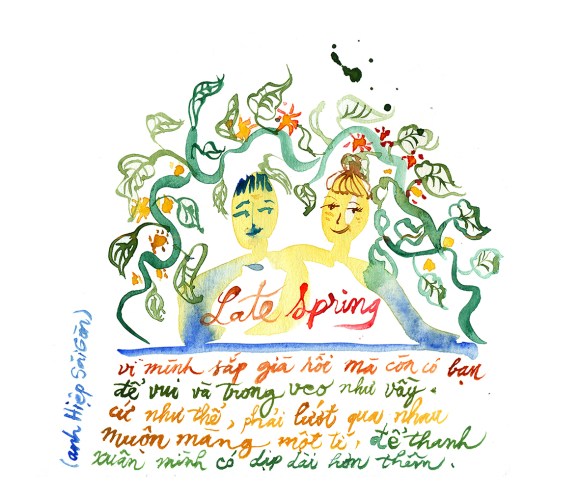 Late Spring
vì mình sắp già rồi mà còn có bạn
để vui và trong veo như vầy.
cứ như thể, phải lướt qua nhau
muôn màng một tí, để thanh
xuân mình có dịp dài hơn thêm.
(anh Hiệp SÀI GÒN)